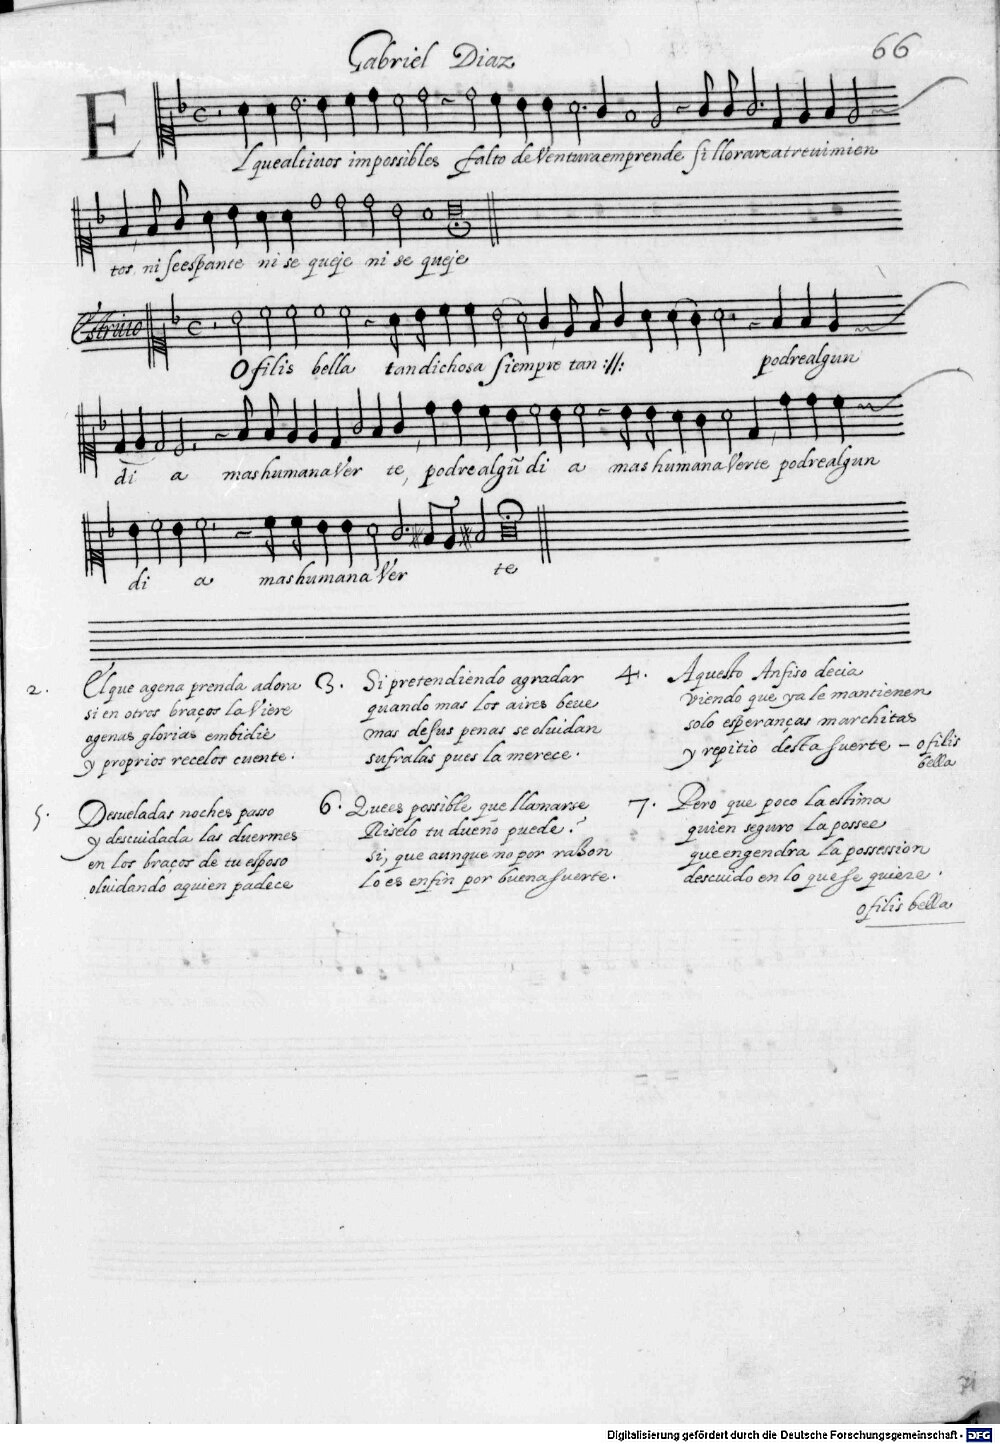 Gabriel Diaz
66
E
L que altivos impossibles falto de Ventura emprende si llorare atrevimien
tos ni se espante ni se queje ni se queje
Estrivo
O filis bella tan dichosa siempre tan :||: podre algun
di a mas humana Ver te, podre algũ di a mas humana Verte podre algun
di a mas humana Ver te
2. El que agena prenda adora
si en otros braços la Viere
agenas glorias embidie
y proprios recelos cuente.
3. Si pretendiendo agradar
quando mas los aires beve
mas de sus penas se olvidan
sufralas pues la merece.
4. Aquesto Anfiso decia
viendo que ya le mantienen
solo esperanças marchitas
y repitio desta suerte – o filis
bella
5. Desveladas noches passo
y descuidada las duermes
en los braços de tu esposo
olvidando aquien padece
6. Quees possible que llamarse
Riselo tu dueño puede?
si, que aunque no por razon
lo es enfin por buena suerte.
7. Pero que poco la estima
quien seguro la possee
que engendra la possession
descuido en lo que se quiere.
o filis bella
71
Digitalisierung gefördert durch die Deutsche Forschungsgemeinschaft - DFG